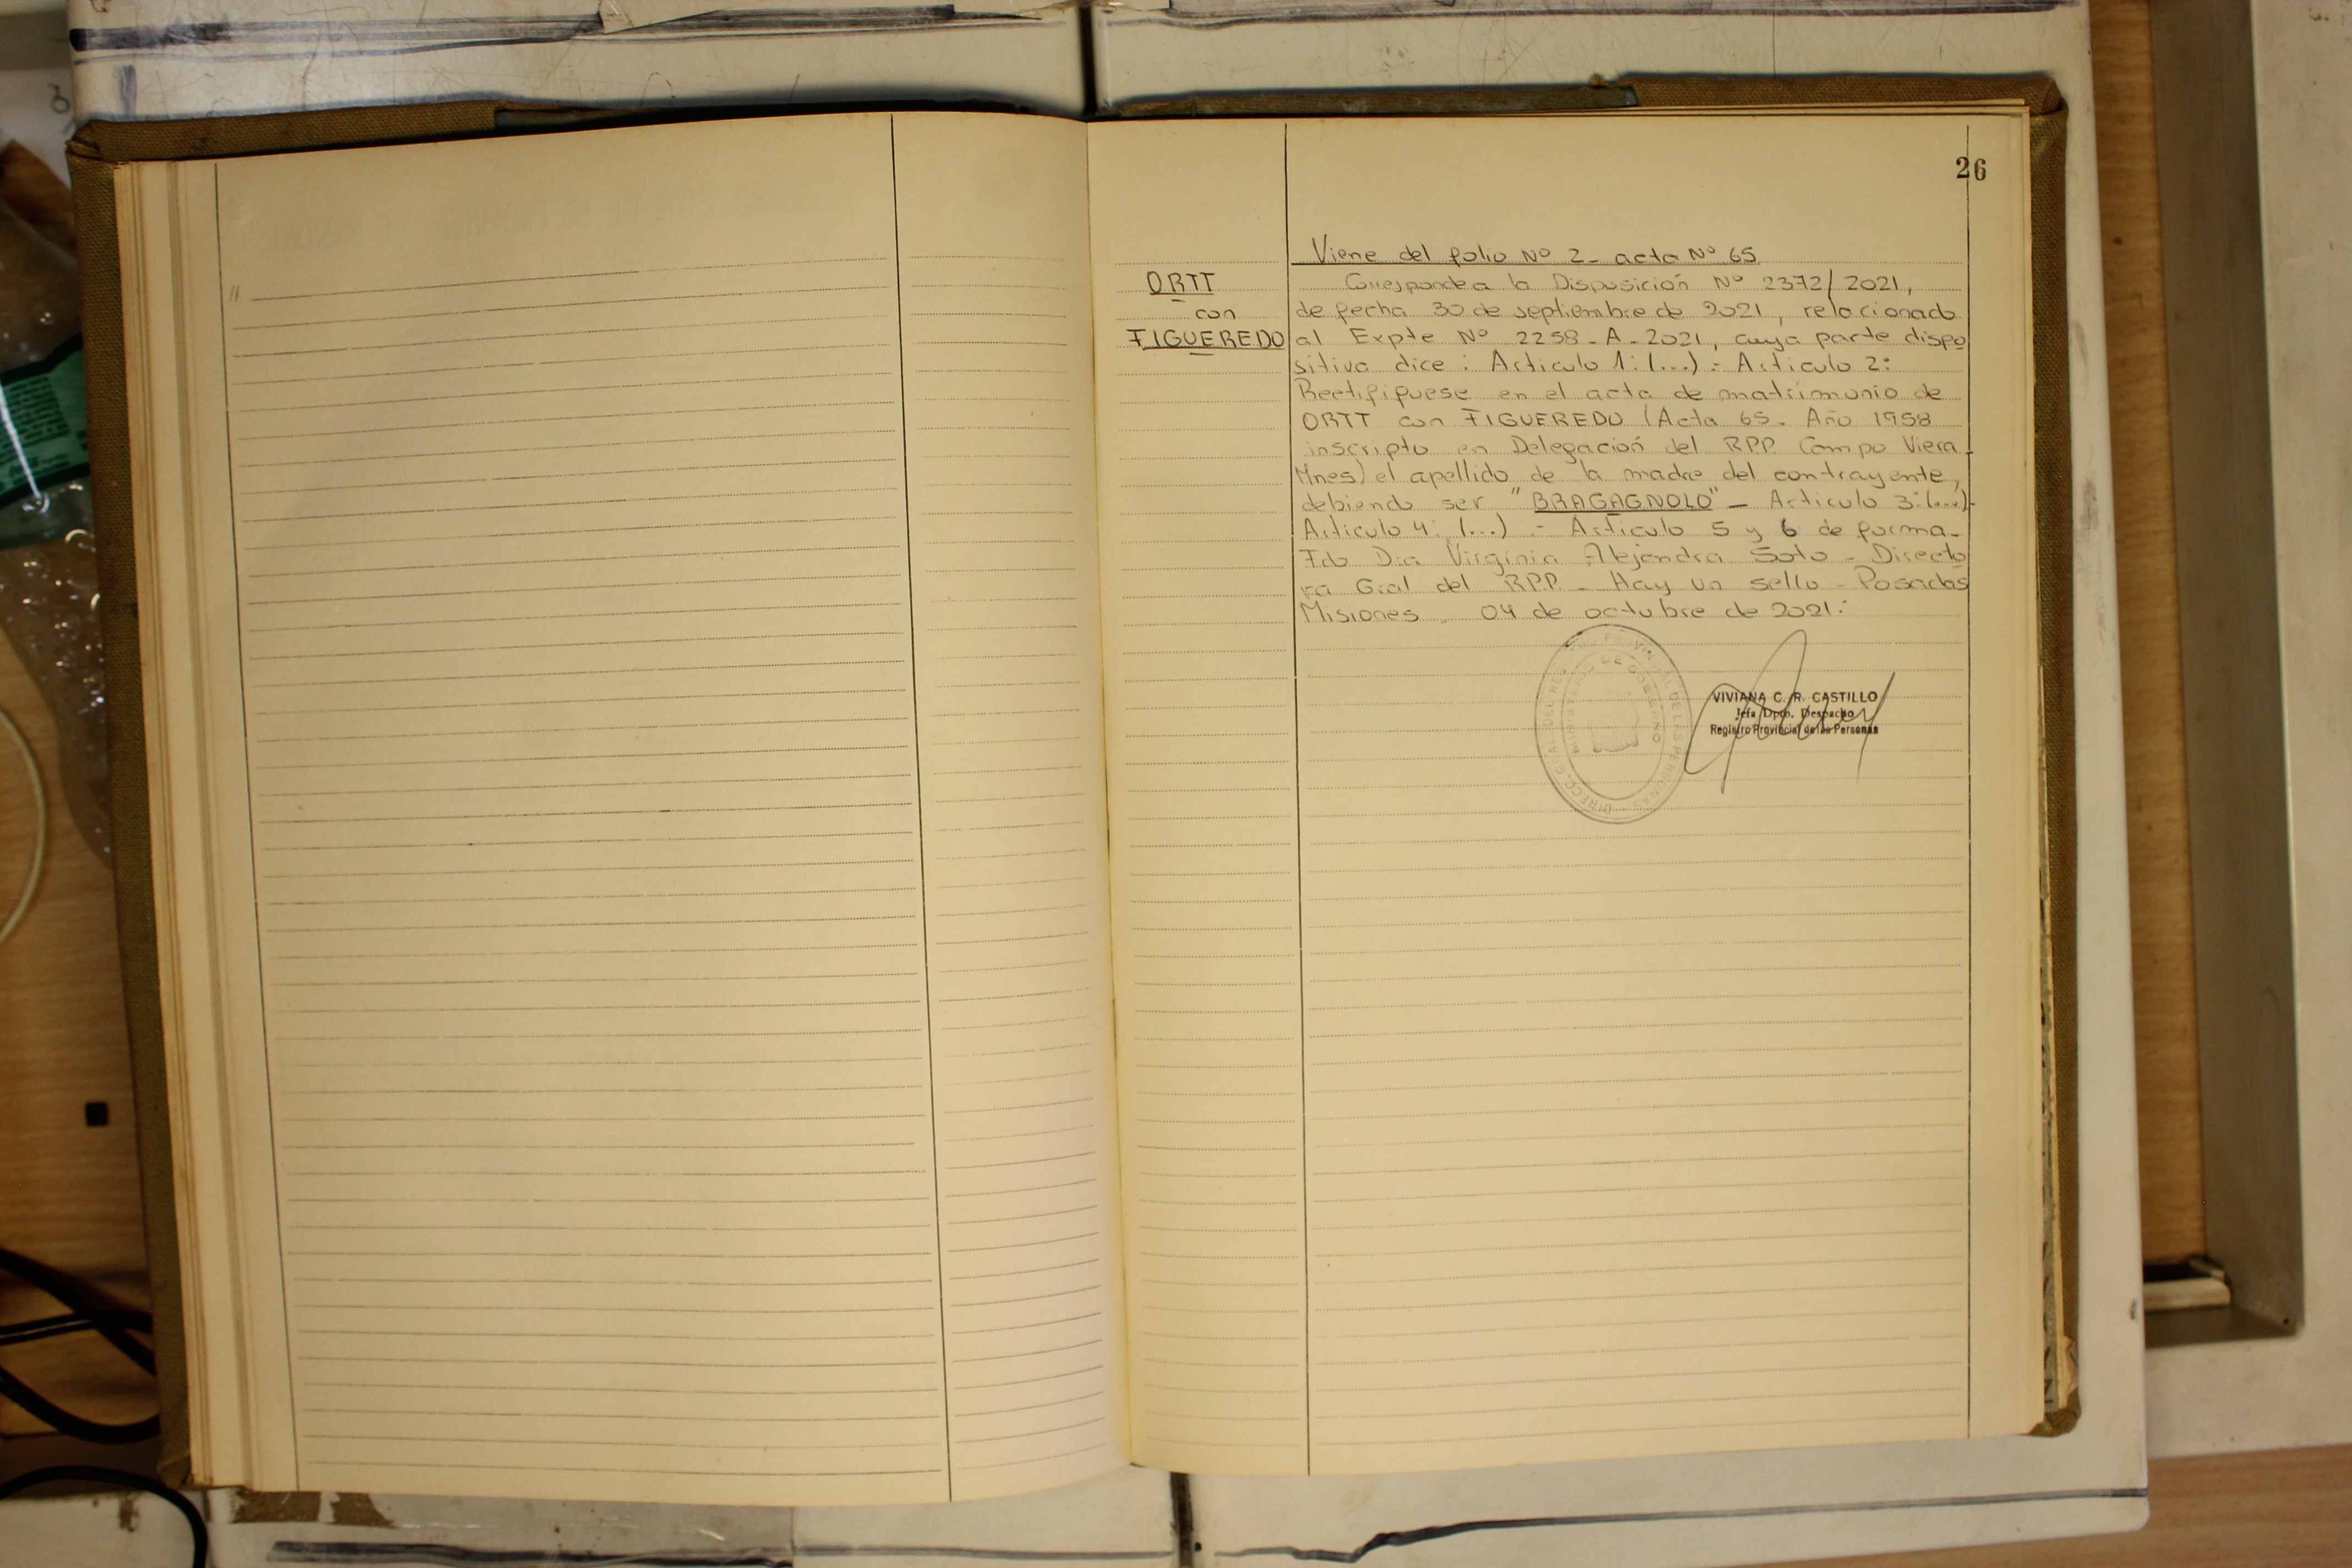 26
Viene del folio Nº 2- acta Nº 65
ORTT
con
FIGUEREDO
Corresponde a la Disposición Nº 2372/2021,
de fecha 30 de septiembre de 2021, relacionado
al Expte Nº 2258-A-2021, cuya parte dispo
sitiva dice: Articulo 1: (...) - Articulo 2:
Rectifiquese en el acta de matrimonio de
ORTT con FIGUEREDO (Acta 65. Año 1958
inscripto en Delegación del RPP. Campo Viera-
Mnes) el apellido de la madre del contrayente,
debiendo ser "BRAGAGNOLO" - Articulo 3: (...)-
Articulo 4: (...) - Articulo 5 y 6 de forma-
Fdo Dra Virginia Alejandra Soto - Directo
ra Gral del RPP. - Hay un sello - Posadas
Misiones 04 de octubre de 2021.-
DIRECC. GRAL. DEL REG. PROVINCIAL DE LAS PERSONAS
MINISTERIO DE GOBIERNO
VIVIANA C. R. CASTILLO
Jefa Dpto. Despacho
Registro Provincial de las Personas